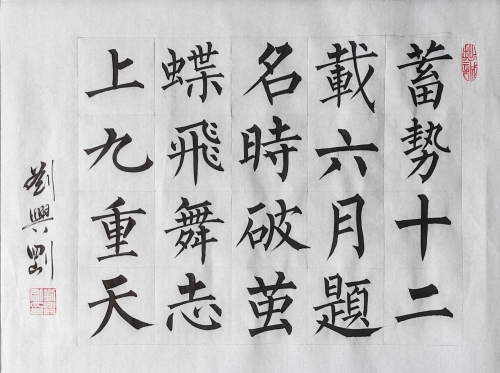 蓄勢十二
載六月題
名時破茧
蝶飛舞志
上九重天
劉興剛